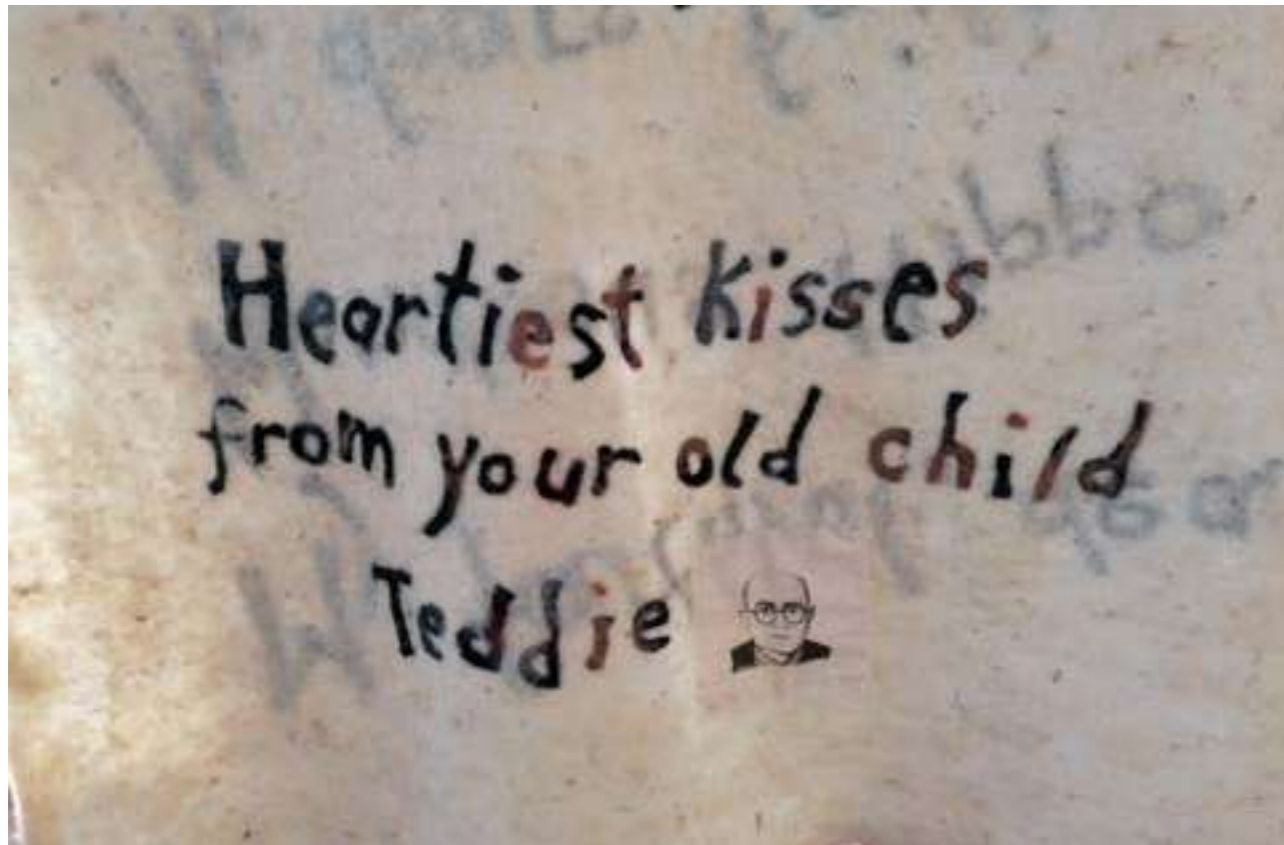 Heartiest kisses
from your old child
Teddie